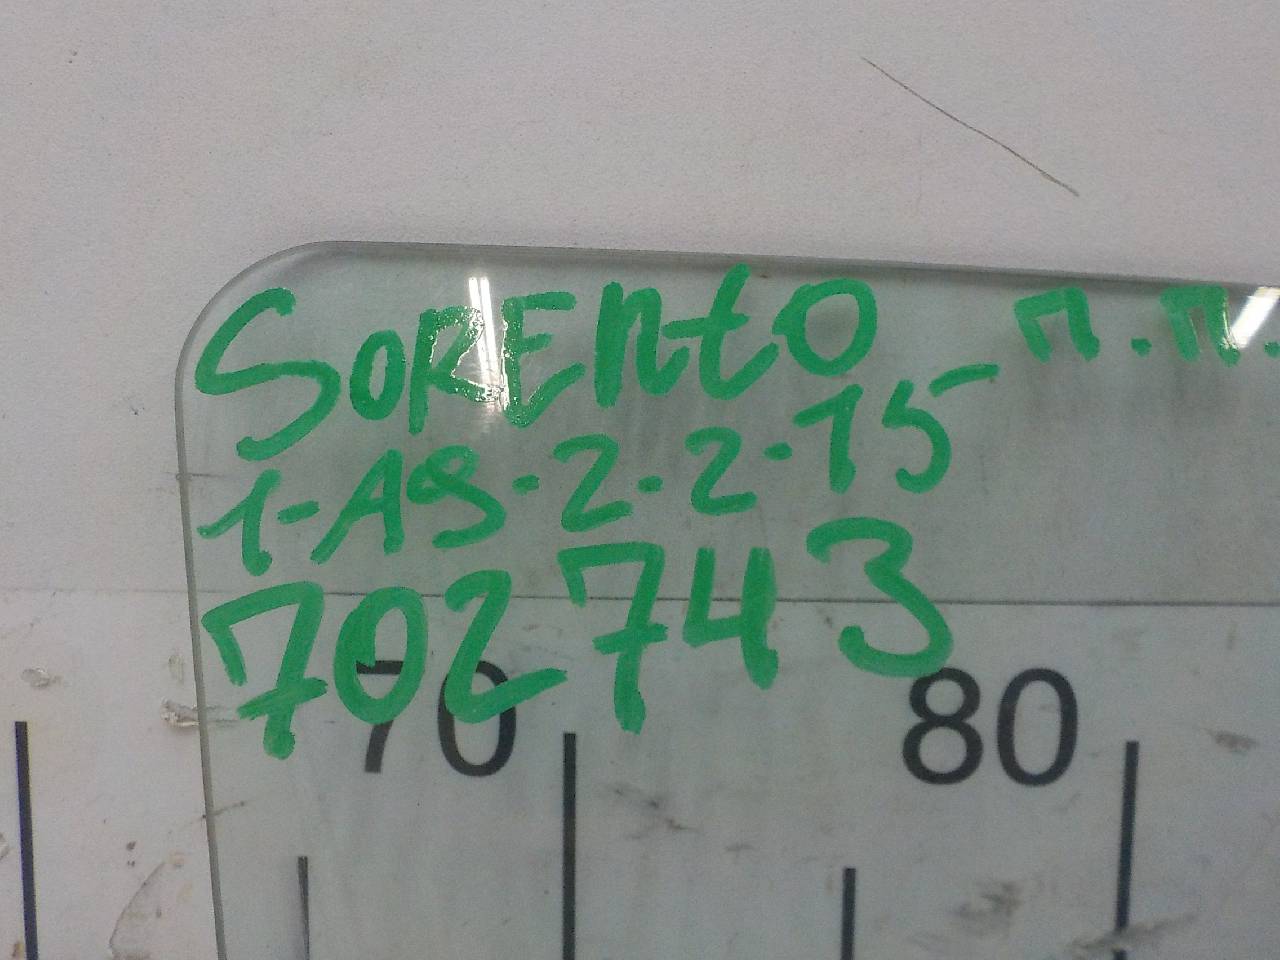 SORENtO - П.П.
1-A9-2-2-15
702743
70 80